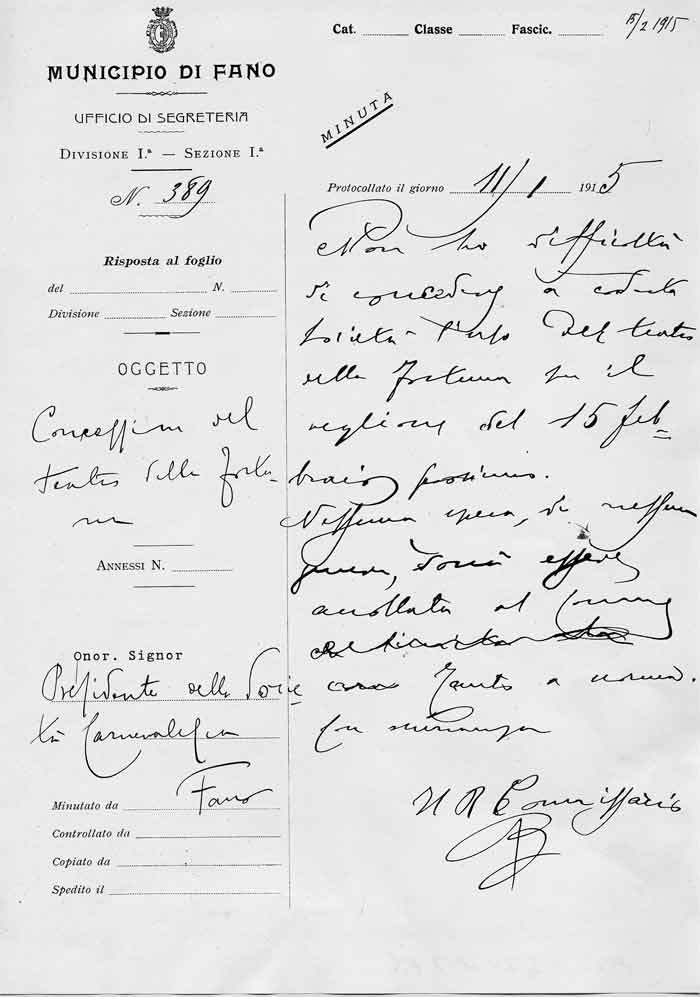 MUNICIPIO DI FANO
UFFICIO DI SEGRETERIA
DIVISIONE I.ª — SEZIONE I.ª
N. 389
Risposta al foglio
del N.
Divisione Sezione
OGGETTO
Concessione del
teatro della Fortu-
na
ANNESSI N.
Onor. Signor
Presidente della Socie
tà Carnevalesca
Fano
Minutato da
Controllato da
Copiato da
Spedito il
Cat. Classe Fascic. 15/2 1915
MINUTA
Protocollato il giorno 11/1 1915
Non ho difficoltà
di concedere a codesta
Società l'uso del teatro
della Fortuna per il
veglione del 15 feb
braio prossimo.
Nessuna spesa, di nessun
genere, dovrà essere
accollata al Comune
Tanto a norma.
Con osservanza
Il R Commissario